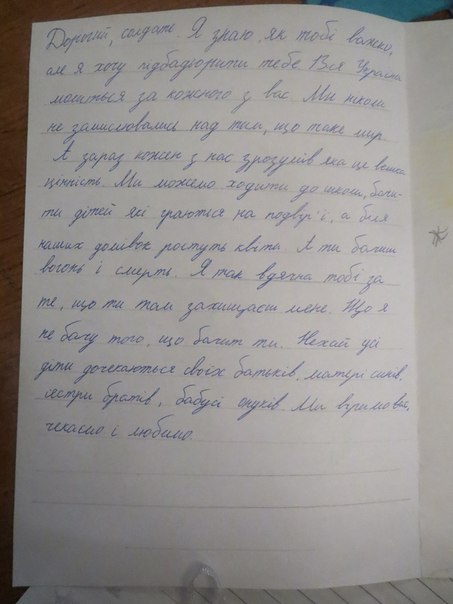 Дорогий, солдате. Я знаю, як тобі важко,
але я хочу підбадьорити тебе. Вся Україна
молиться за кожного з вас. Ми ніколи
не замислювались над тим, що таке мир.
А зараз кожен з нас зрозумів яка це велика
цінність. Ми можемо ходити до школи, бачи-
ти дітей які граються на подвір'ї, а біля
наших домівок ростуть квіти. А ти бачиш
вогонь і смерть. Я так вдячна тобі за
те, що ти там захищаєш мене. Що я
не бачу того, що бачиш ти. Нехай усі
діти дочекаються своїх батьків, матері синів,
сестри братів, бабусі онуків. Ми віримо вас,
чекаємо і любимо.